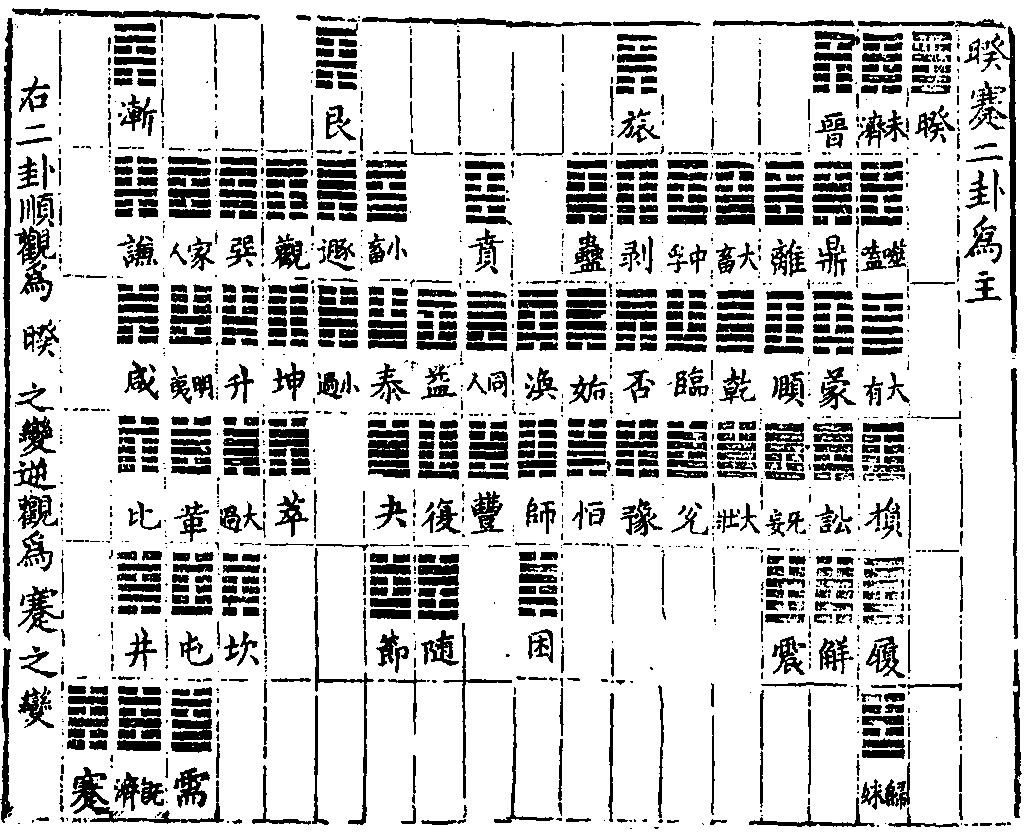 暌蹇二卦爲主
暌
未濟
噬嗑
大有
損
履
歸妹
晉
鼎
蒙
訟
解
離
頤
无妄
震
大畜
乾
大壯
中孚
臨
兌
旅
剥
否
豫
蠱
姤
恒
渙
師
困
賁
同人
豐
益
復
随
小畜
泰
夬
節
艮
遯
小過
觀
坤
萃
巽
升
大過
坎
家人
明夷
革
屯
需
漸
謙
咸
比
井
既濟
蹇
右二卦順觀爲暌之變逆觀爲蹇之變